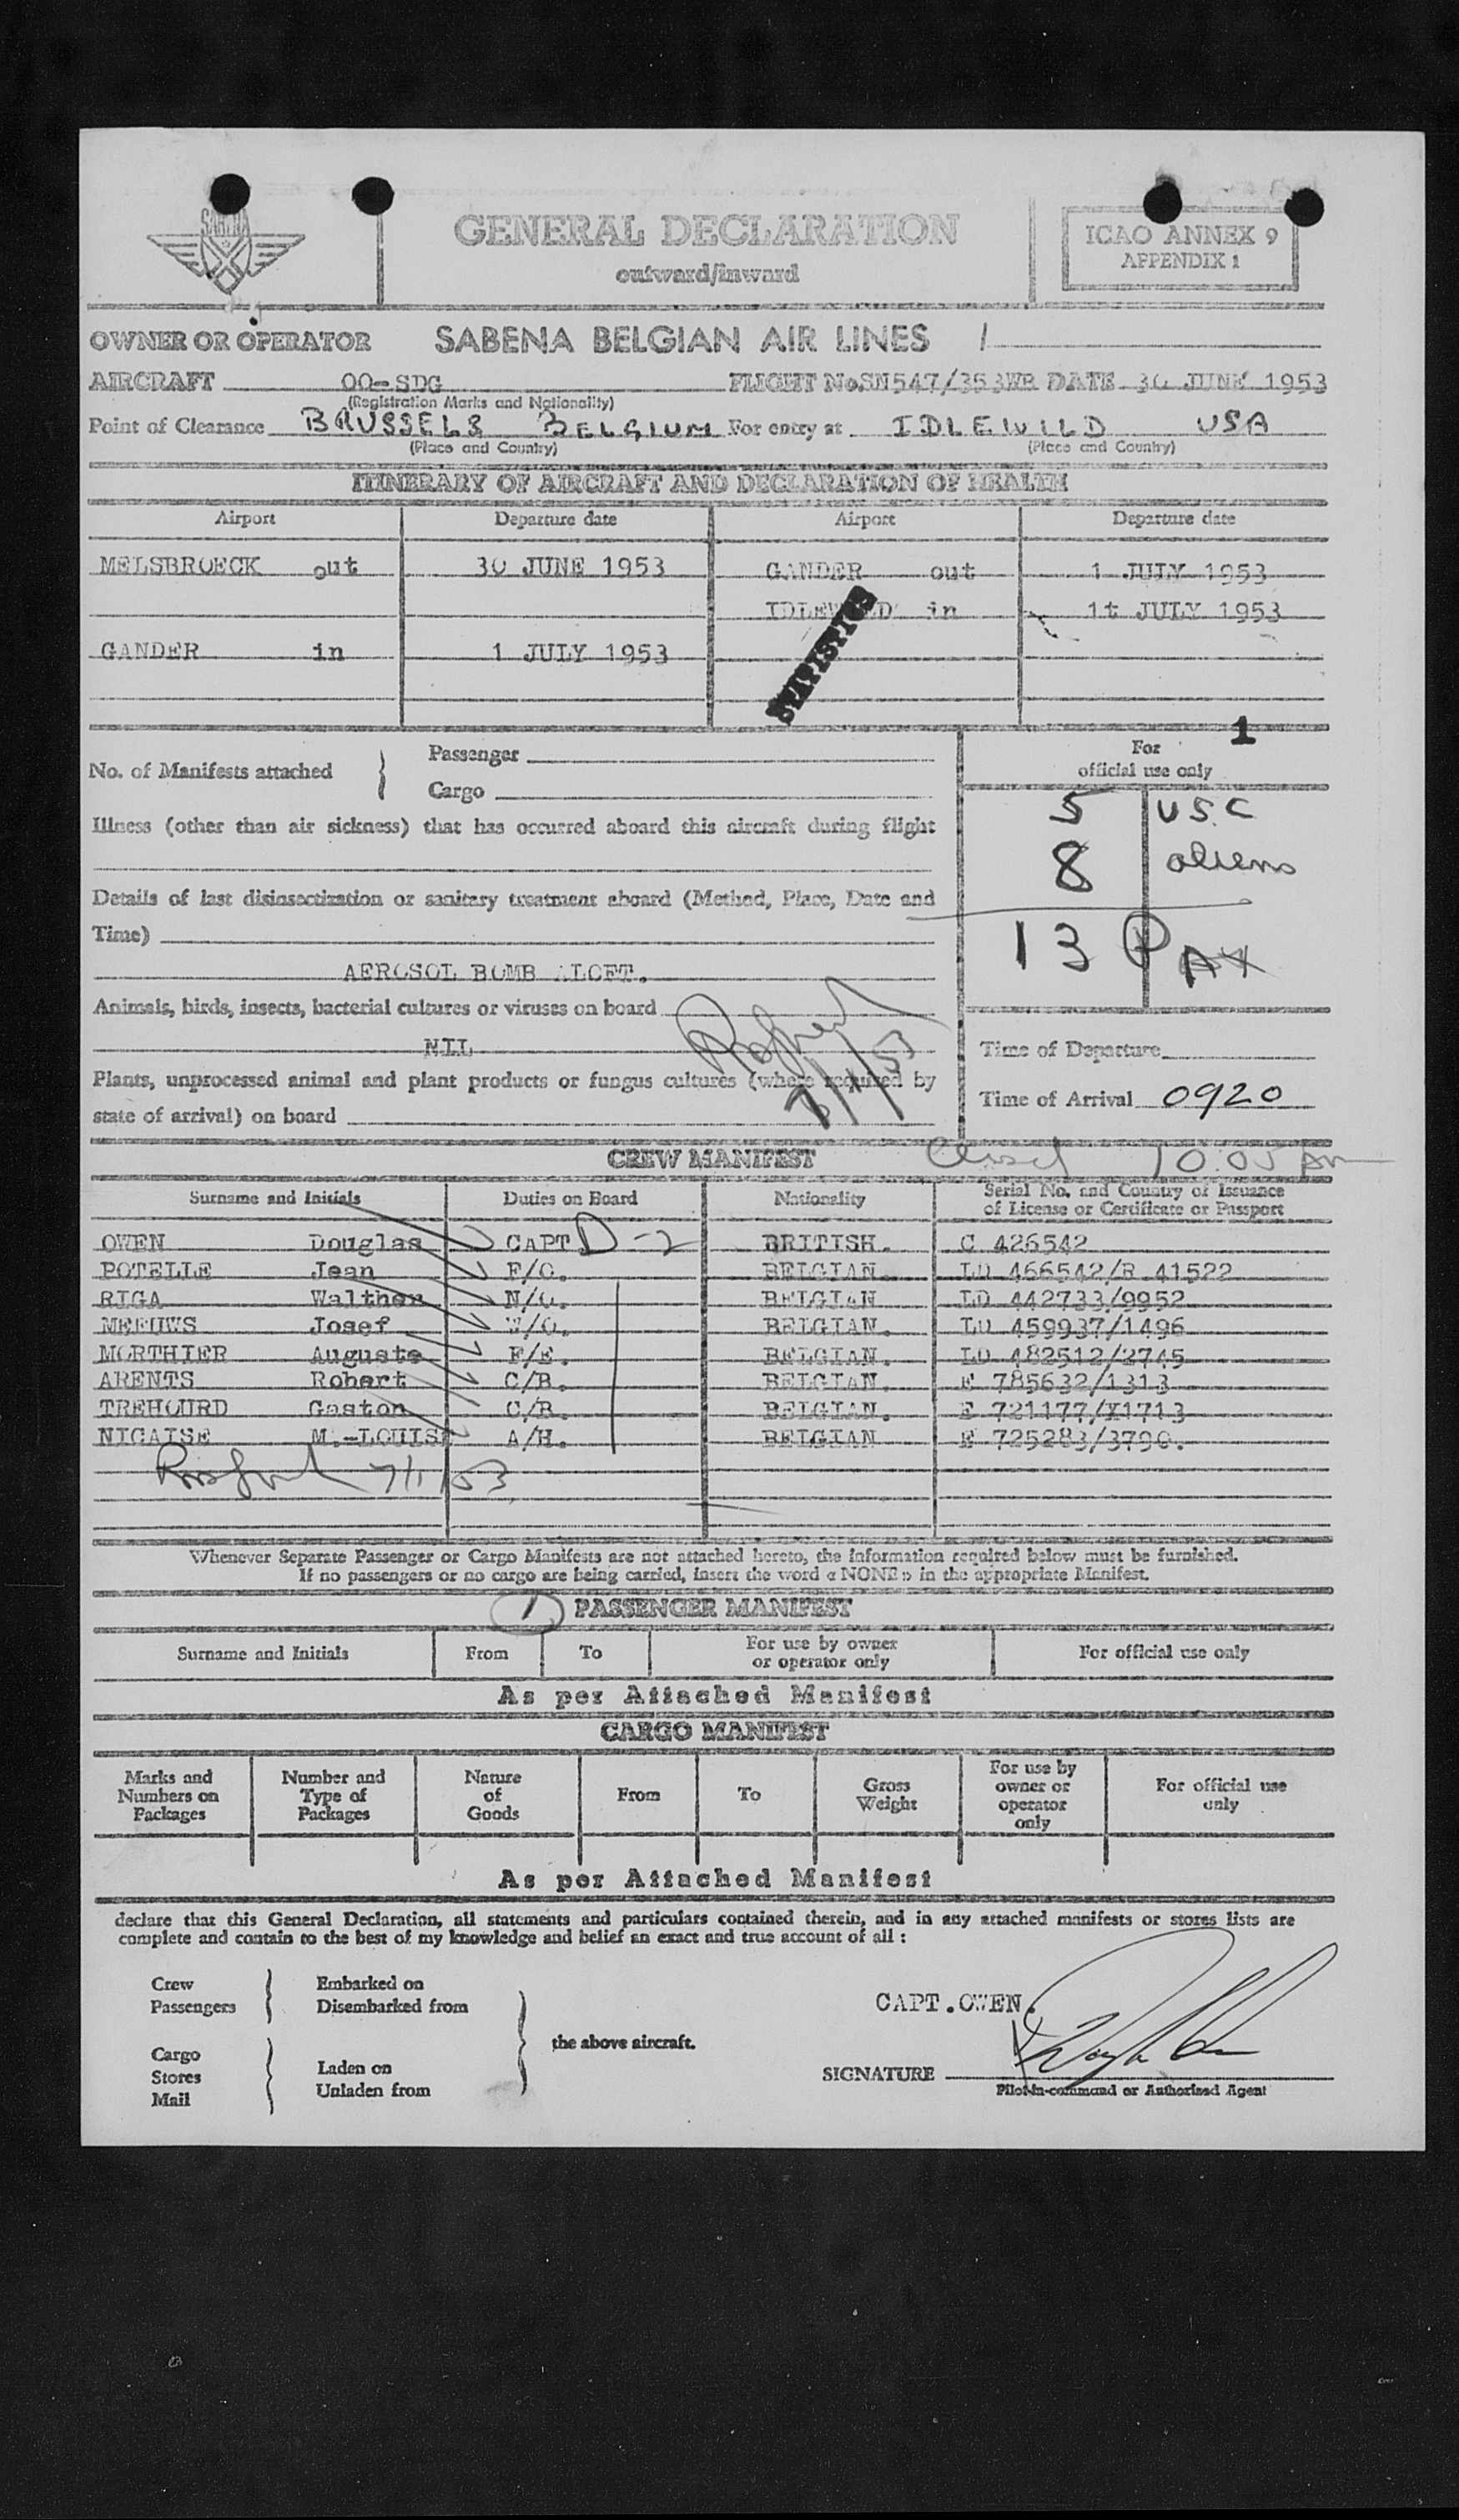 SABENA
GENERAL DECLARATION
outward/inward
ICAO ANNEX 9
APPENDIX 1
OWNER OR OPERATOR SABENA BELGIAN AIR LINES /
AIRCRAFT OO-SDG FLIGHT No. SN547/353WR DATE 30 JUNE 1953
(Registration Marks and Nationality)
Point of Clearance BRUSSELS BELGIUM For entry at IDLEWILD USA
(Place and Country) (Place and Country)
ITINERARY OF AIRCRAFT AND DECLARATION OF HEALTH
Airport Departure date Airport Departure date
MELSBROECK out 30 JUNE 1953 GANDER out 1 JULY 1953
IDLEWILD in 1t JULY 1953
GANDER in 1 JULY 1953
STATISTICS
1
No. of Manifests attached Passenger
Cargo
For
official use only
5 USC
8 aliens
13 PAX
Illness (other than air sickness) that has occurred aboard this aircraft during flight
Details of last disinsectization or sanitary treatment aboard (Method, Place, Date and
Time)
AEROSOL BOMB ALOFT.
Animals, birds, insects, bacterial cultures or viruses on board
NIL
7/1/53
Plants, unprocessed animal and plant products or fungus cultures (where required by
state of arrival) on board
Time of Departure
Time of Arrival 0920
Closed 10:05 am
CREW MANIFEST
Surname and Initials Duties on Board Nationality Serial No. and Country of Issuance
of License or Certificate or Passport
OWEN Douglas CAPT D-2 BRITISH. C 426542
POTELLE Jean F/O. BELGIAN. LD 466542/B 41522
RIGA Walther N/O. BELGIAN LD 442733/9952
MEEUWS Josef W/O. BELGIAN. LD 459937/1496
MORTHIER Auguste F/E. BELGIAN. LD 482512/2745
ARENTS Robert C/B. BELGIAN. E 785632/1313
TREHOURD Gaston C/B. BELGIAN. E 721177/X1713
NICAISE M.-LOUISE A/H. BELGIAN E 725283/3790.
7/1/53
Whenever Separate Passenger or Cargo Manifests are not attached hereto, the information required below must be furnished.
If no passengers or no cargo are being carried, insert the word « NONE » in the appropriate Manifest.
1 PASSENGER MANIFEST
Surname and Initials From To For use by owner
or operator only For official use only
As per Attached Manifest
CARGO MANIFEST
Marks and
Numbers on
Packages Number and
Type of
Packages Nature
of
Goods From To Gross
Weight For use by
owner or
operator
only For official use
only
As per Attached Manifest
declare that this General Declaration, all statements and particulars contained therein, and in any attached manifests or stores lists are
complete and contain to the best of my knowledge and belief an exact and true account of all :
Crew Embarked on
Passengers Disembarked from
the above aircraft.
Cargo
Stores Laden on
Mail Unladen from
CAPT.OWEN.
SIGNATURE
Pilot-in-command or Authorised Agent